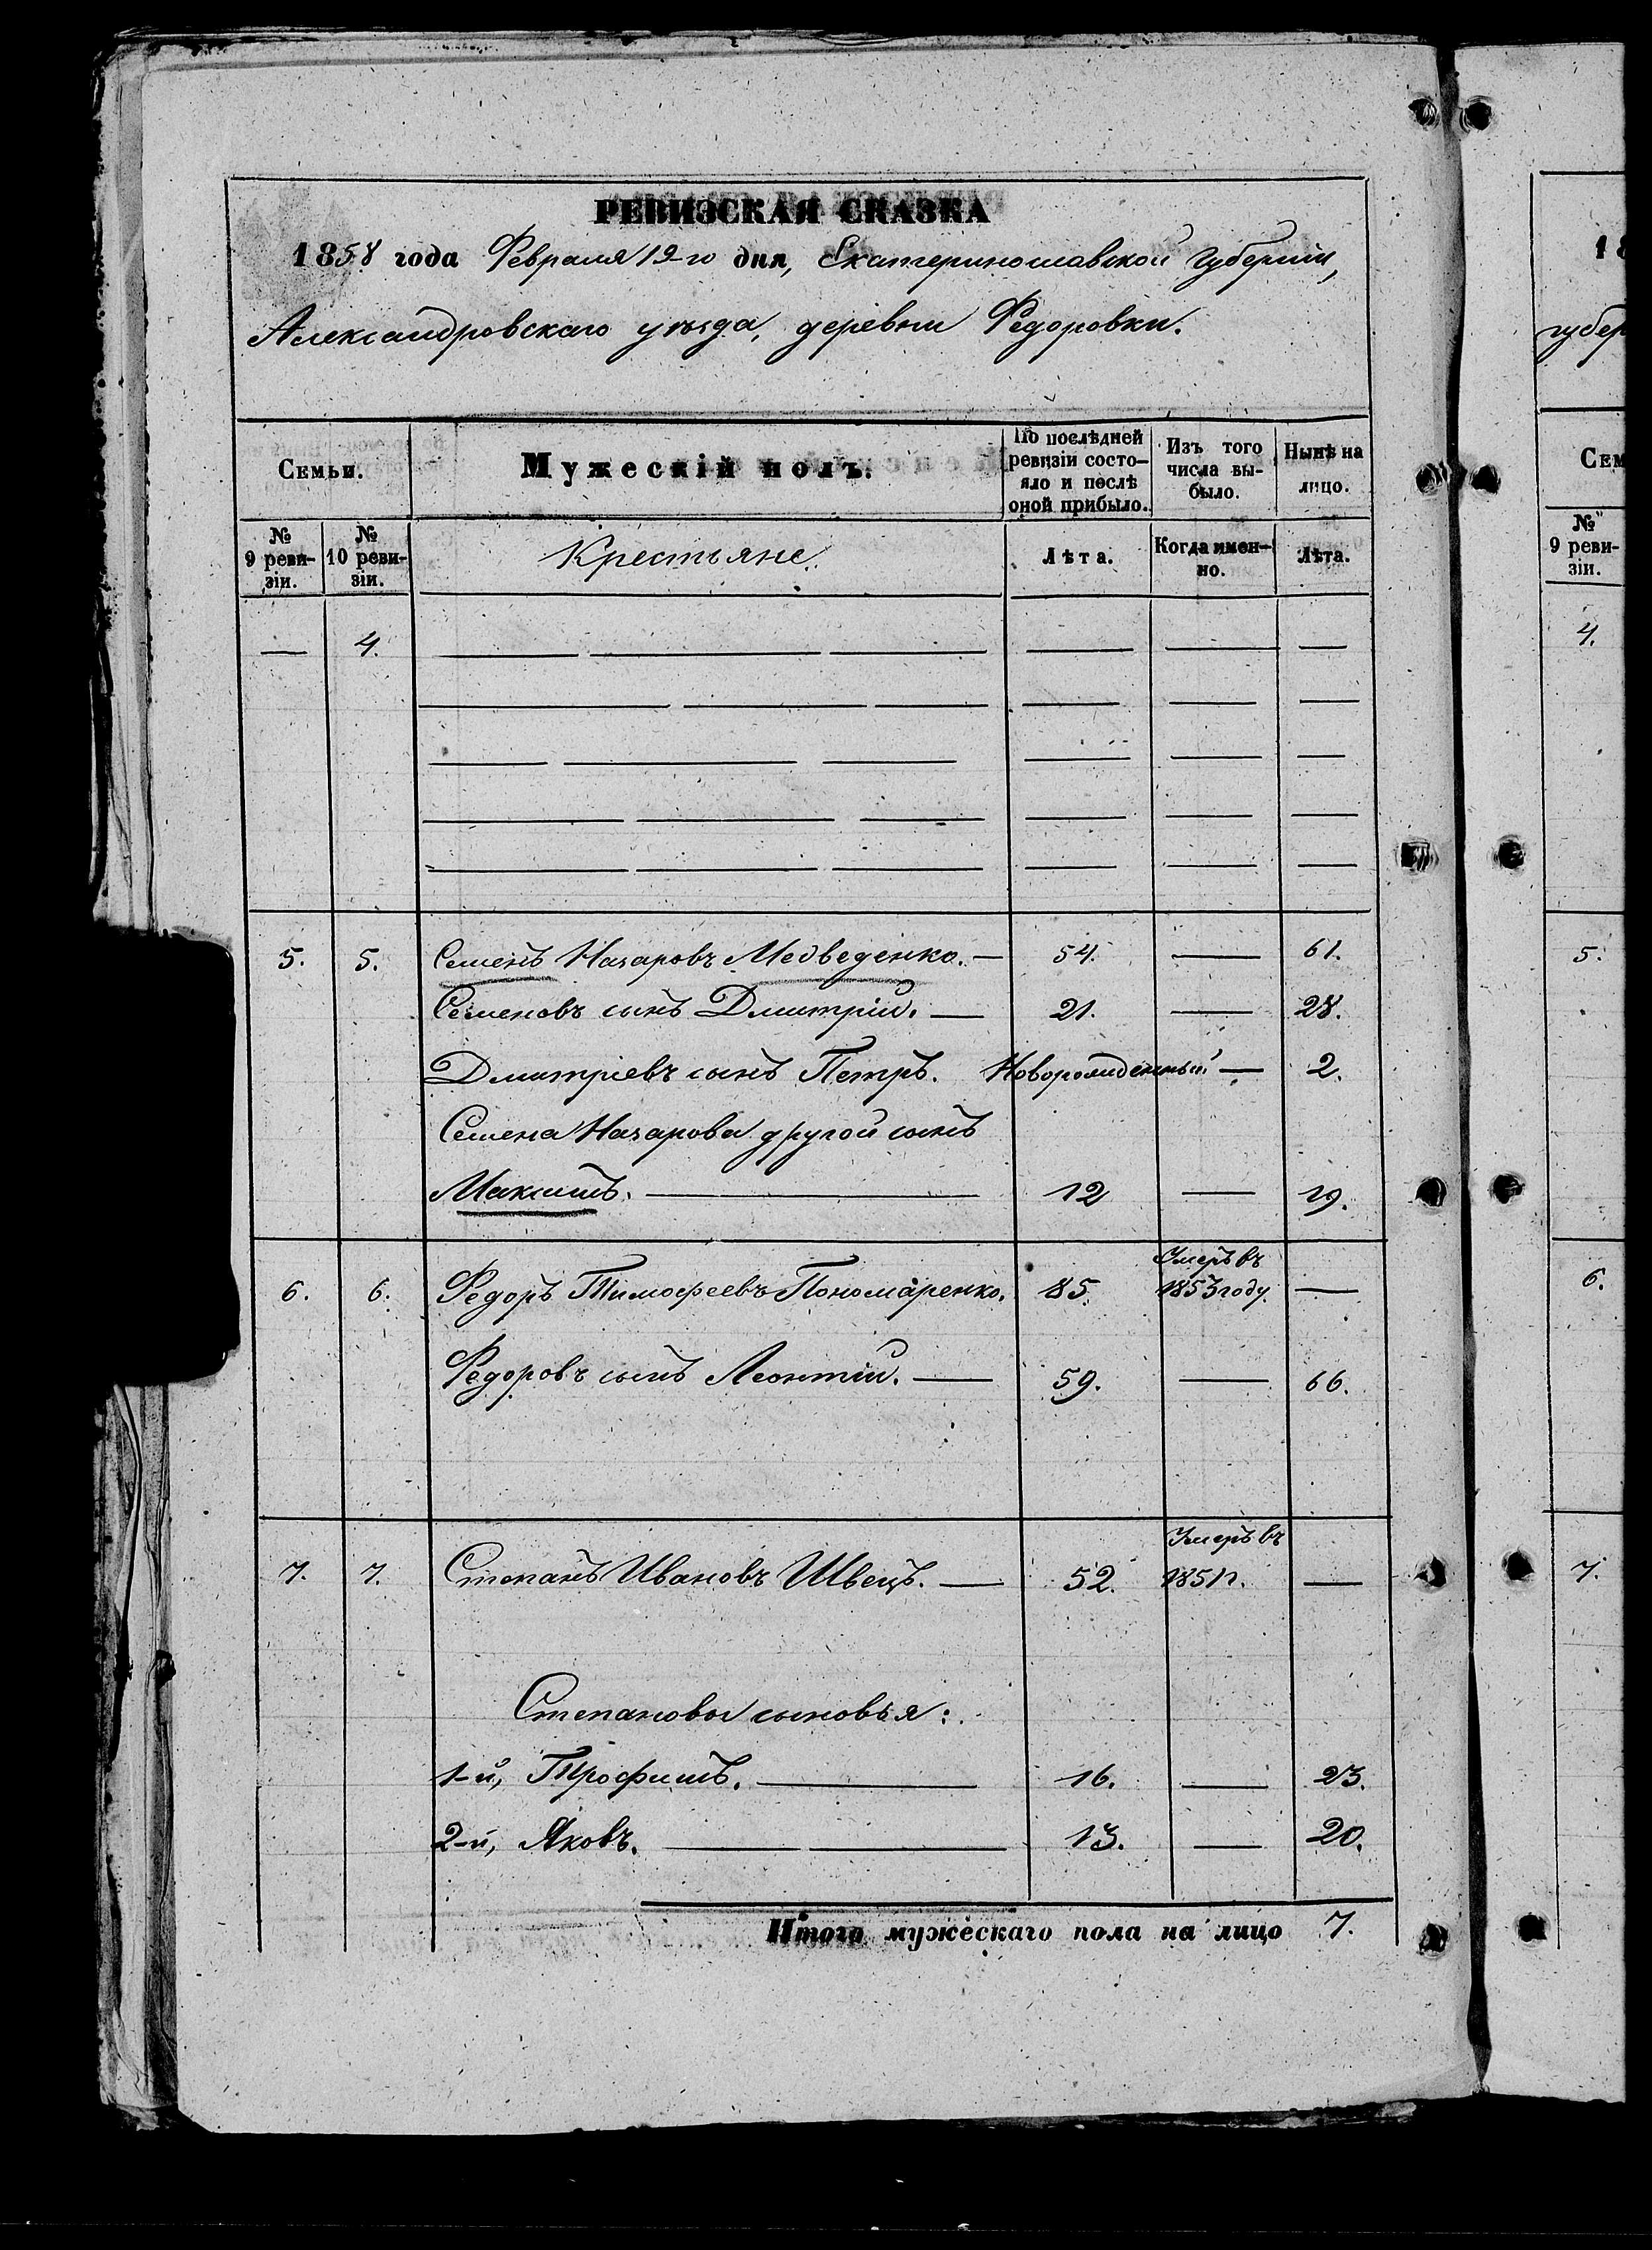 РЕВИЗСКАЯ СКАЗКА
1858 года Февраля 12-го дня, Екатеринославской Губерніи,
Александровскаго уѣзда, деревни Федоровки.
Семьи. Мужескій полъ. По послѣдней ревизіи состо-яло и послѣ оной прибыло. Изъ того числа вы-было. Нынѣ на лицо.
№ 9 реви-зіи. № 10 реви-зіи. Крестьяне. Лѣта. Когда имен-но. Лѣта.
— 4. — — — — — —
— — — — — —
— — — — — —
— — — — — —
— — — — — —
5. 5. Семенъ Назаровъ Медведенко. — 54. — 61.
Семеновъ сынъ Дмитрій. — 21. — 28.
Дмитріевъ сынъ Петръ. Новорожденный — 2.
Семена Назарова другой сынъ
Максимъ. — 12 — 19.
6. 6. Федоръ Тимофеевъ Пономаренко. 85. Умеръ въ 1853 году. —
Федоровъ сынъ Леонтій. — 59. — 66.
7. 7. Степанъ Ивановъ Швецъ. — 52. Умеръ въ 1851 г. —
Степановы сыновья:
1-й, Трофимъ. — 16. — 23.
2-й, Яковъ. — — 13. — 20.
Итого мужескаго пола на лицо 7.
18
губер
Сем
№
9 реви-
зіи.
4.
5.
6.
7.